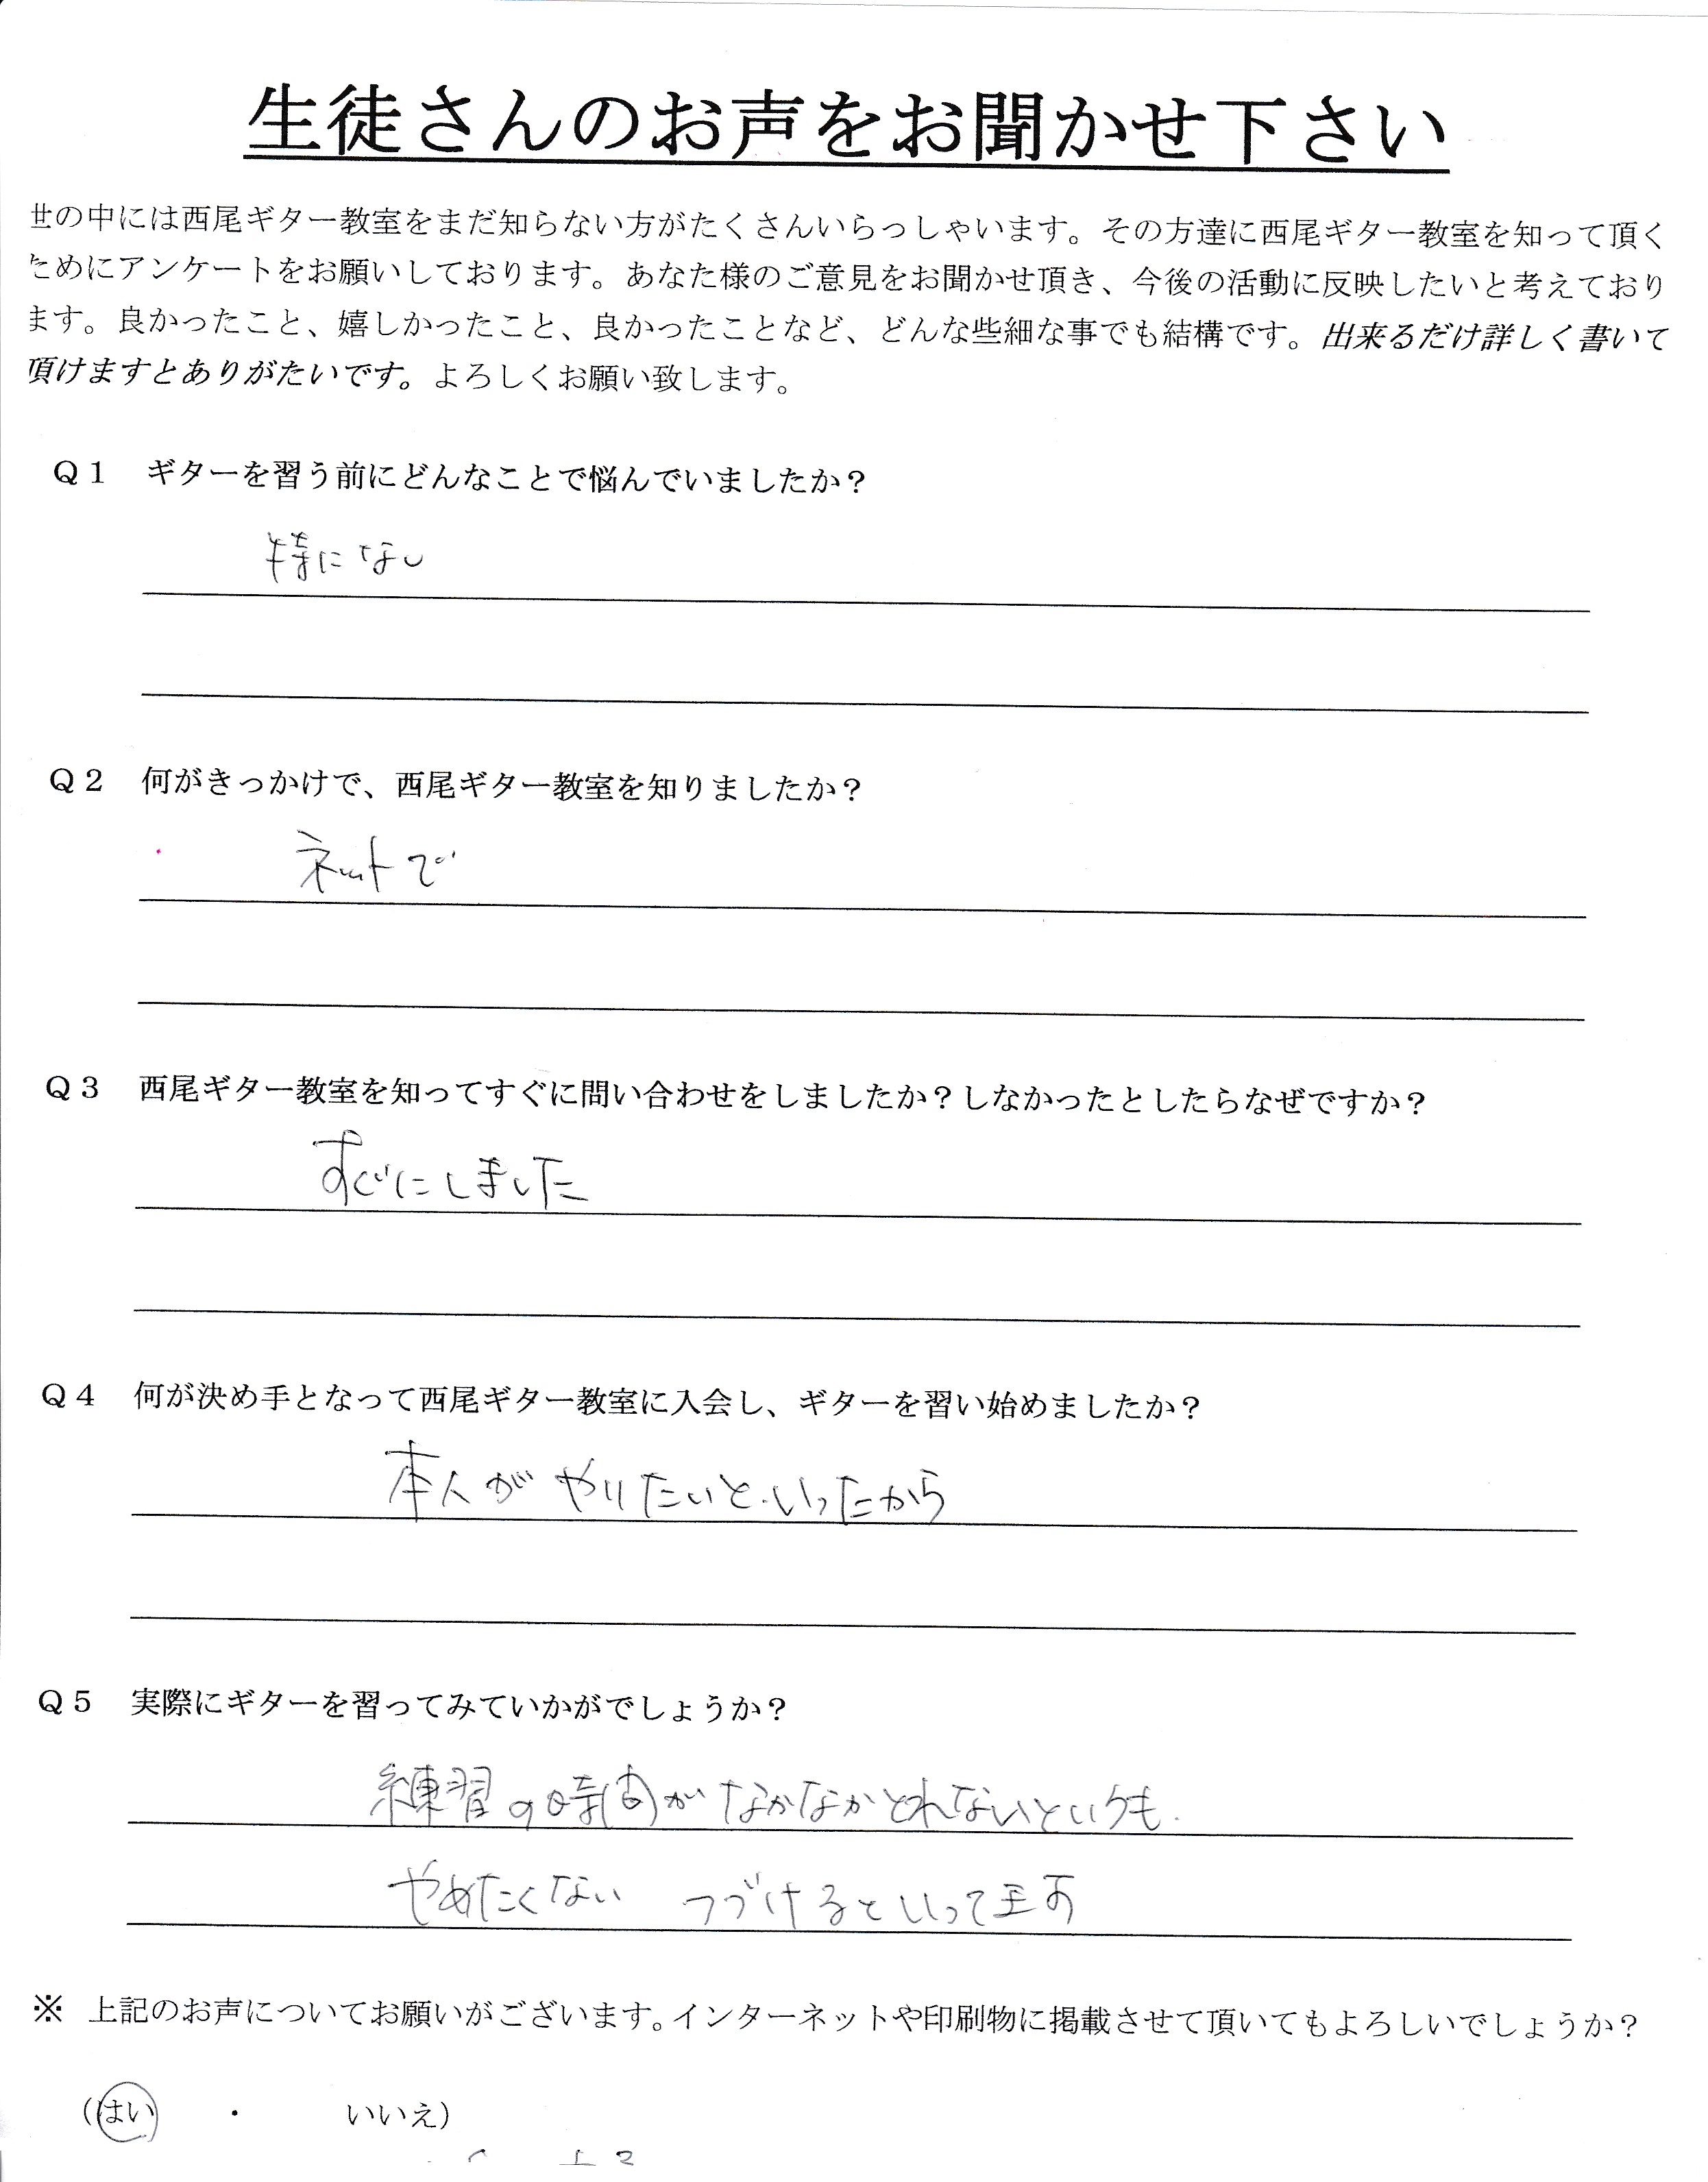 生徒さんのお声をお聞かせ下さい
世の中には西尾ギター教室をまだ知らない方がたくさんいらっしゃいます。その方達に西尾ギター教室を知って頂く
ためにアンケートをお願いしております。あなた様のご意見をお聞かせ頂き、今後の活動に反映したいと考えており
ます。良かったこと、嬉しかったこと、良かったことなど、どんな些細な事でも結構です。出来るだけ詳しく書いて
頂けますとありがたいです。よろしくお願い致します。
Q1 ギターを習う前にどんなことで悩んでいましたか?
特になし
Q2 何がきっかけで、西尾ギター教室を知りましたか?
ネットで
Q3 西尾ギター教室を知ってすぐに問い合わせをしましたか?しなかったとしたらなぜですか?
すぐにしました
Q4 何が決め手となって西尾ギター教室に入会し、ギターを習い始めましたか?
本人がやりたいといったから
Q5 実際にギターを習ってみていかがでしょうか?
練習の時間がなかなかとれないといつも
やめたくない つづけるといってます
※ 上記のお声についてお願いがございます。インターネットや印刷物に掲載させて頂いてもよろしいでしょうか?
(はい ・ いいえ)